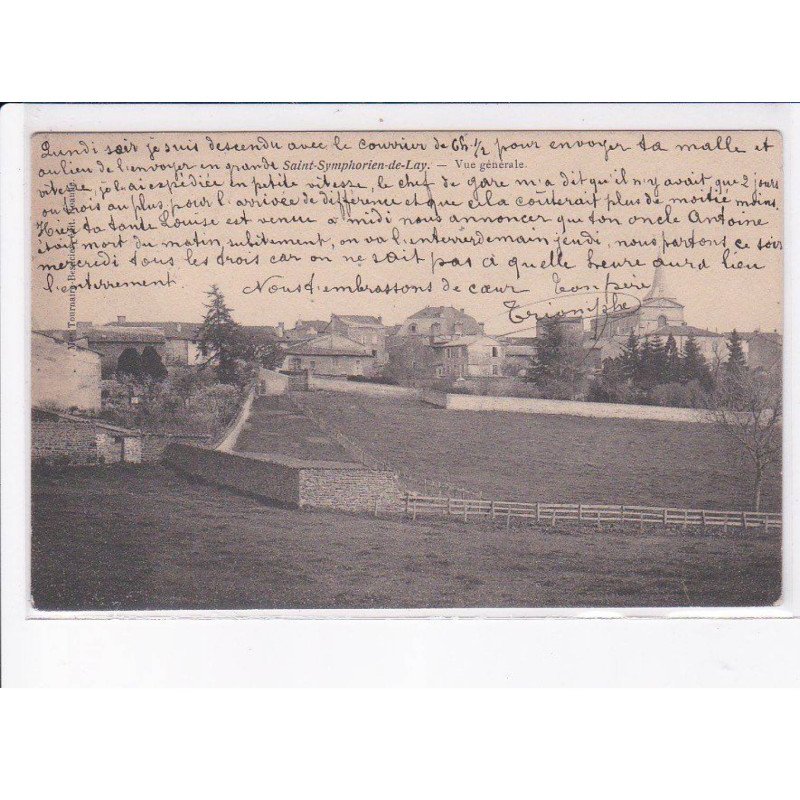 Lundi soir je suis descendu avec le courrier de 6h ½ pour envoyer ta malle et
au lieu de l'envoyer en grande Saint-Symphorien-de-Lay. — Vue générale.
vitesse, je l'ai expédiée en petite vitesse, le chef de gare m'a dit qu'il n'y avait que 2 jours
ou trois au plus, pour l'arrivée de différence et que cela couterait plus de moitié moins.
Hier ta tante Louise est venue à midi nous annoncer que ton oncle Antoine
était mort du matin subitement, on va l'enterrer demain jeudi, nous partons ce soir
mercredi tous les trois car on ne sait pas à quelle heure aura lieu
l'enterrement Nous t'embrassons de cœur Ton père
Triomphe